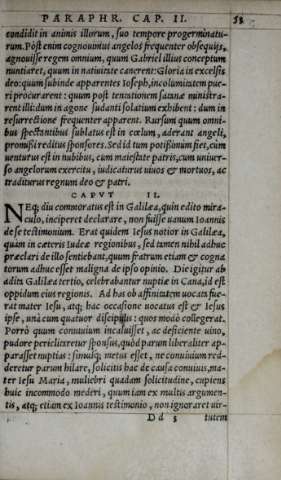 PARAPHR. CAP. II. 53
condidit in animis illorum, suo tempore progerminatu-
rum. Post enim cognouimus angelos frequenter obsequijs,
agnouisse regem omnium, quum Gabriel illius conceptum
nuntiaret, quum in natiuitate canerent: Gloria in excelsis
deo: quum subinde apparentes Ioseph, incolumitatem pue-
ri procurarent: quum post tentationem satanæ ministra-
rent illi: dum in agone sudanti solatium exhibent: dum in
resurrectione frequenter apparent. Rursum quum omni-
bus spectantibus sublatus est in cœlum, aderant angeli,
promissi reditus sponsores. Sed id tum potissimum fiet, cum
uenturus est in nubibus, cum maiestate patris, cum uniuer-
so angelorum exercitu, iudicaturus uiuos & mortuos, ac
traditurus regnum deo & patri.
CAPVT II.
NEq; diu commoratus est in Galilæa, quin edito mira-
culo, inciperet declarare, non fuisse uanum Ioannis
de se testimonium. Erat quidem Iesus notior in Galilæa,
quàm in cæteris Iudeæ regionibus, sed tamen nihil adhuc
præclari de illo sentiebant, quum fratrum etiam & cogna
torum adhuc esset maligna de ipso opinio. Die igitur ab
adita Galilæa tertio, celebrabantur nuptiæ in Cana, id est
oppidum eius regionis. Ad has ob affinitatem uocata fue-
rat mater Iesu, atq; hac occasione uocatus est & Iesus
ipse, unà cum quatuor discipulis: quos modò collegerat.
Porrò quum conuiuium incaluisset, ac deficiente uino,
pudore periclitaretur sponsus, quòd parum liberaliter ap-
parasset nuptias: simulq; metus esset, ne conuiuium red-
deretur parum hilare, solicitis hac de causa conuiuis, ma-
ter Iesu Maria, muliebri quadam solicitudine, cupiens
huic incommodo mederi, quum iam ex multis argumen-
tis, atq; etiam ex Ioannis testimonio, non ignoraret uir-
Dd 3 tutem